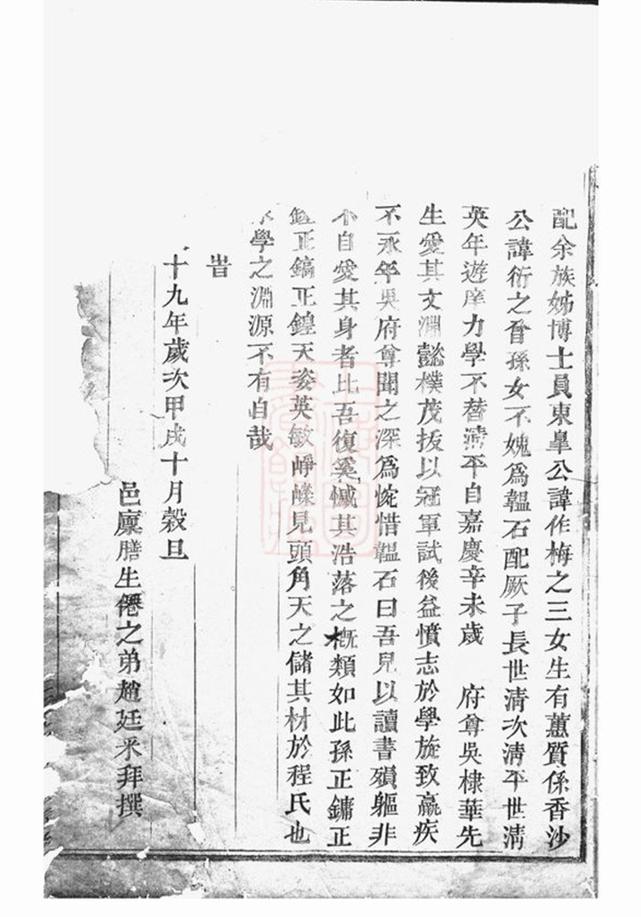 配余族姊博士員東臯公諱作梅之三女生有蕙質係香沙
公諱衍之晉孫女不媿爲韞石配厥子長世清次淸平世淸
英年遊庠力學不替淸平自嘉慶辛未歲　府尊吳棣華先
生愛其文淵懿樸茂拔以冠軍試後益憤志於學旋致羸疾
不永年吳府尊聞之深爲惋惜韞石曰吾兒以讀書殞軀非
不自愛其身者比吾復奚憾其浩落之槪類如此孫正鏞正
正鎬正鍠天姿英敏崢嶸見頭角天之儲其材於程氏也
學之淵源不有自哉
旹
十九年歲次甲戌十月穀旦
邑廩膳生僊之弟趙廷釆拜撰